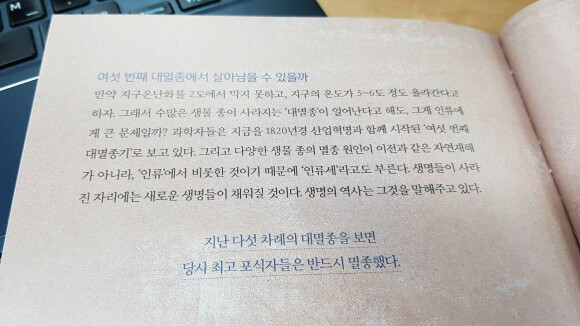 여섯 번째 대멸종에서 살아남을 수 있을까
만약 지구온난화를 2도에서 막지 못하고, 지구의 온도가 5~6도 정도 올라간다고
하자. 그래서 수많은 생물 종이 사라지는 '대멸종'이 일어난다고 해도, 그게 인류에
게 큰 문제일까? 과학자들은 지금을 1820년경 산업혁명과 함께 시작된 '여섯 번째
대멸종기'로 보고 있다. 그리고 다양한 생물 종의 멸종 원인이 이전과 같은 자연재해
가 아니라, '인류'에서 비롯한 것이기 때문에 '인류세'라고도 부른다. 생명들이 사라
진 자리에는 새로운 생명들이 채워질 것이다. 생명의 역사는 그것을 말해주고 있다.
지난 다섯 차례의 대멸종을 보면
당시 최고 포식자들은 반드시 멸종했다.